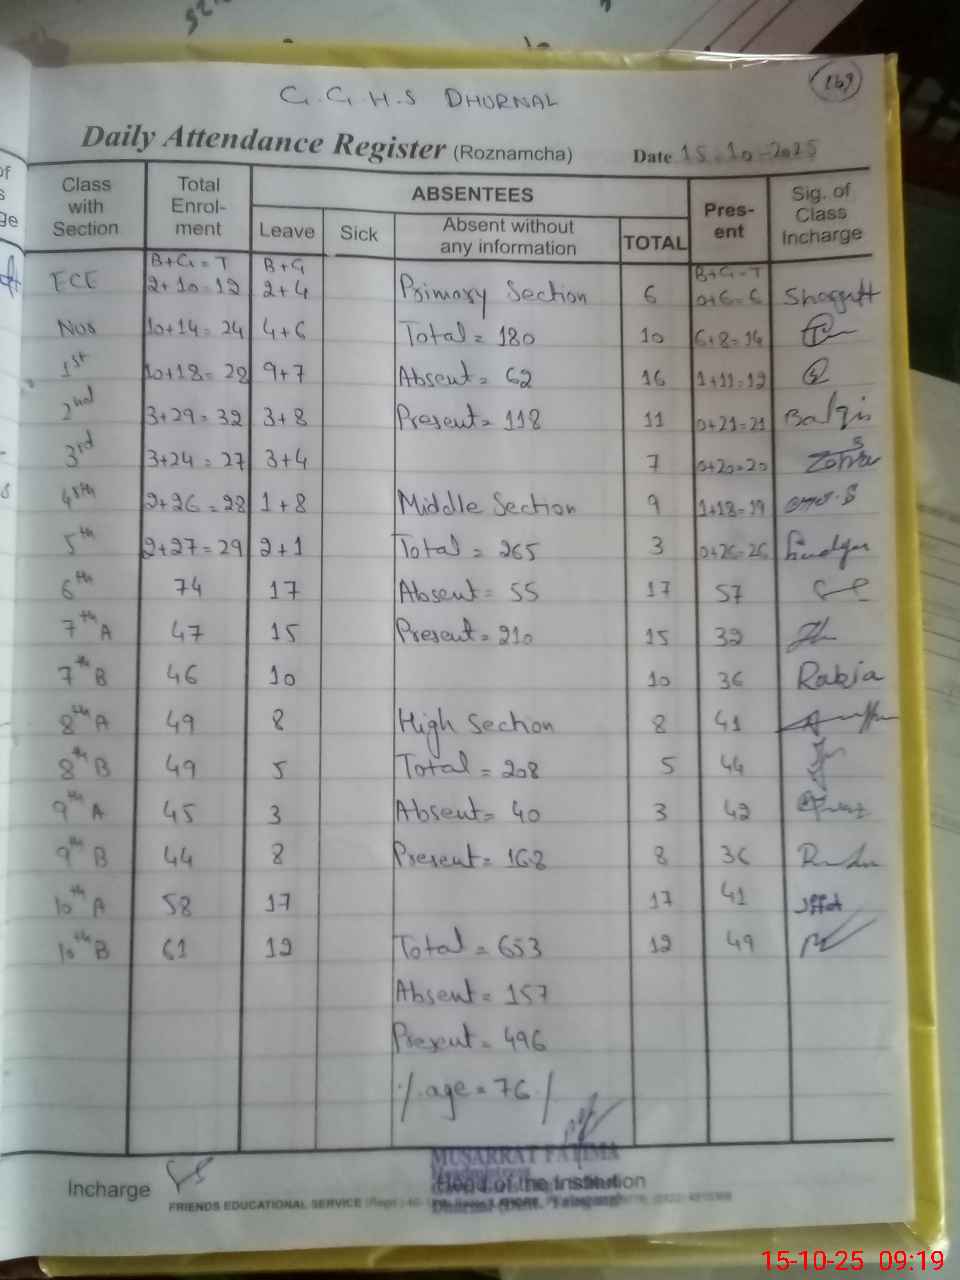 169
G.G.H.S DHURNAL
Daily Attendance Register (Roznamcha) Date 15-10-2025
Class with Section Total Enrol-ment ABSENTEES Pres-ent Sig. of Class Incharge
Leave Sick Absent without any information TOTAL
B+G=T B+G B+G=T
ECE 2+10=12 2+4 Primary Section 6 0+6=6 Shaggufta
Nur 10+14=24 4+6 Total = 180 10 6+8=14
1st 10+18=28 9+7 Absent = 62 16 1+11=12
2nd 3+29=32 3+8 Present = 118 11 0+21=21 Balqis
3rd 3+24=27 3+4 7 0+20=20
4th 2+26=28 1+8 Middle Section 9 1+18=19
5th 2+27=29 2+1 Total = 265 3 0+26=26
6th 74 17 Absent = 55 17 57
7th A 47 15 Present = 210 15 32
7th B 46 10 10 36 Rabia
8th A 49 8 High Section 8 41
8th B 49 5 Total = 208 5 44
9th A 45 3 Absent = 40 3 42
9th B 44 8 Present = 168 8 36
10th A 58 17 17 41 Iffat
10th B 61 12 Total = 653 12 49
Absent = 157
Present = 496
%age = 76%
MUSARRAT FATIMA
Headmistress
Incharge Head of the Institution
FRIENDS EDUCATIONAL SERVICE
15-10-25 09:19